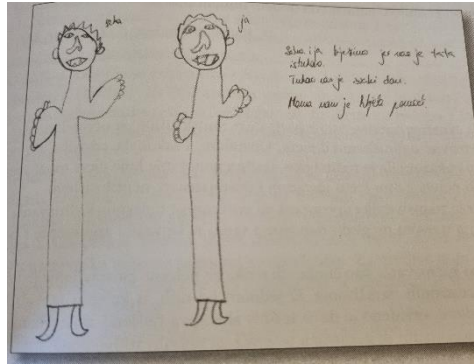 seka
ja
Seka i ja bježimo jer nas je tata
istukao.
Tukao nas je svaki dan.
Mama nam je htjela pomoći.